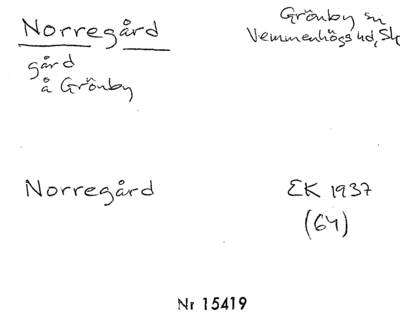 Norregård
gård
å Grönby
Grönby sn
Vemmenhögs hd, Sk
Norregård
EK 1937
(64)
Nr 15419